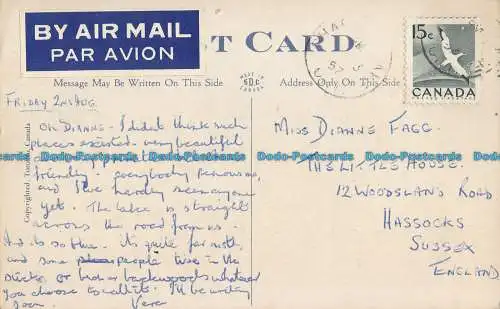 BY AIR MAIL
PAR AVION
T CARD
15c
CANADA
Message May Be Written On This Side
MADE IN
CANADA
Address Only On This Side
FRIDAY 2nd AUG.
Oh DIANNE - I didn't think such
places existed. Very beautiful
friendly. everybody knows us,
and I've hardly seen anyone
yet. The lake is straight
across the road from us.
And its so blue. It's quite far north,
and some people live in the
sticks, or bush or backwoods whatever
you choose to call it. I'll be writing
soon. Vera
Copyrighted
MISS DIANNE FAGG.
"THE LITTLE HOUSE"
12 WOODSLANDS ROAD
HASSOCKS
SUSSEX
ENGLAND
Dodo-Postcards Dodo-Postcards Dodo-Postcards Dodo-Postcards